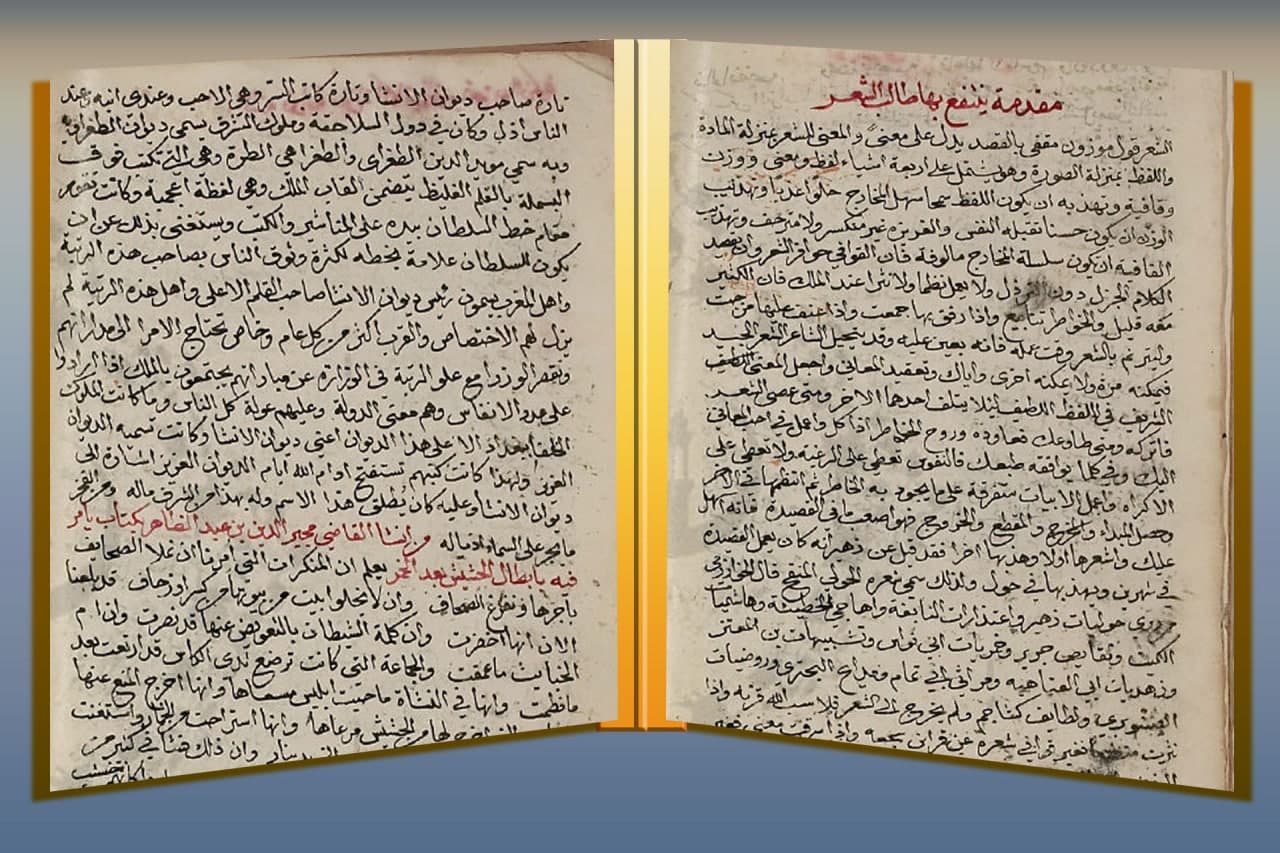 مقدمة ينتفع بها طالب الشعر
الشعر قول موزون مقفى بالقصد يدل على معنى والمعنى للشعر بمنزلة المادة
واللفظ بمنزلة الصورة وهو يشتمل على اربعة اشياء لفظ ومعنى ووزن
وقافية وتهذيبه ان يكون اللفظ سمحا سهل المخارج حلوا عذبا وتهذيب
الوزن ان يكون حسنا تقبله النفس والغريزة غير منكسر ولا منزحف وتهذيب
القافية ان تكون سلسلة المخارج مالوفة فان القوافي حوافر الشعر وان يقصد
الكلام الجزل دون الرذل ولا يعمل نظما ولا نثرا عند الملك فان الكثير
معه قليل والخواطر ينابيع واذا رفق بها جمعت واذا عنف عليها نزحت
وليترنم بالشعر وقت عمله فانه يعين عليه وقد يتحيل الشاعر الشعر الجيد
فيمكنه مرة ولا يمكنه اخرى واياك وتعقيد المعاني واجعل المعنى
الشريف في اللفظ اللطيف ليلا يتلف احدهما الاخر ومتى عصى الشعر
فاتركه ومتى طاوعك فعاوده وروح الخاطر اذا كل واعمل في احب المعاني
اليك وفي كلما يوافقه طبعك فالنفوس تعطي على الرغبة ولا تعطي على
الاكراه واعمل الابيات متفرقة على ما يجود به الخاطر ثم انظمها في الاخر
وحصل المبداء والمخرج والمقطع والخروج فهو اصعب ما في القصيدة فانه اسهل
عليك واشعرها اولا وهذبها اخرا فقد قيل عن زهير انه كان يعمل القصيدة
في شهرين ويهذبها في حول ولذلك سمي شعره الحولي المنقح قال الخوارزمي
من روى حوليات زهير واعتذارات النابغة واهاجي الحطيئة وهاشميات
الكميت ونقايض جرير وخمريات ابي نواس وتشبيهات بن المعتز
وزهديات ابي العتاهيه ومراثي ابي تمام ومدايح البحتري وروضيات
الصنوبري ولطائف كشاجم ولم يخرج الى الشعر فلا اشب الله قرنه واذا
تارة صاحب ديوان الانشا وتارة كاتب السر وهي الاحب وعندي انبه وعند
الناس ادل وكان في دول السلاجقة وملوك الشرق يسمى ديوان الطغراي
وبه سمي مويد الدين الطغراى والطغرا هي الطرة وهي التي تكتب فوق
البسملة بالقلم الغليظ يتضمن القاب الملك وهي لفظة اعجمية وكانت تقوم
مقام خط السلطان بيده على المناشير والكتب ويستغنى بذلك عن ان
يكون للسلطان علامة بخطه لكثرة وثوق الناس بصاحب هذه الرتبة
واهل المغرب يسمون رئيس ديوان الانشا صاحب القلم الاعلى واهل هذه الرتبة لم
يزل لهم الاختصاص والقرب اكثر من كل عام وخاص تحتاج الامرا الى مداراتهم
وتقصر الوزرا مع علو الرتبة في الوزارة عن مباراتهم يجتمعون بالملك اذا ارادوا
على عدد الانفاس وهم معنى الدولة وعليهم عولة كل الناس وما كانت الملوك
الخلفا ببغداد الا على هذا الديوان اعني ديوان الانشا وكانت تسميه الديوان
العزيز ولهذا كانت كتبهم تستفتح ادام الله ايام الديوان العزيز اشارة الى
ديوان الانشا وعليه كان يطلق هذا الاسم وله بهذا من الشرف ماله ومن الفخر
ما يجر على السماء اذياله من انشا القاضي محيي الدين بن عبد الظاهر كتاب يامر
فيه بابطال الحشيش بعد الخمر يعلم ان المنكرات التي امرنا ان تملا الصحايف
باجرها وتفرغ الصحاف وان لا تخلوا بيت من بيوتها من كسر او زحاف قد بلغنا
الان انها اختصرت وان كلمة الشيطان بالتعويض عنها قد نصرت وان ام
الخبايث ما عقمت والجماعة التي كانت ترضع ثدى الكاس قد ارتضعت بعد
ما فطمت وانها في النشاة ماخيبت ابليس مسعاها وانها اخرج المنع عنها
لها من الحشيش مرعاها وانها استراحت من الخمار واستغنت
وان ذلك فشا في كثير من